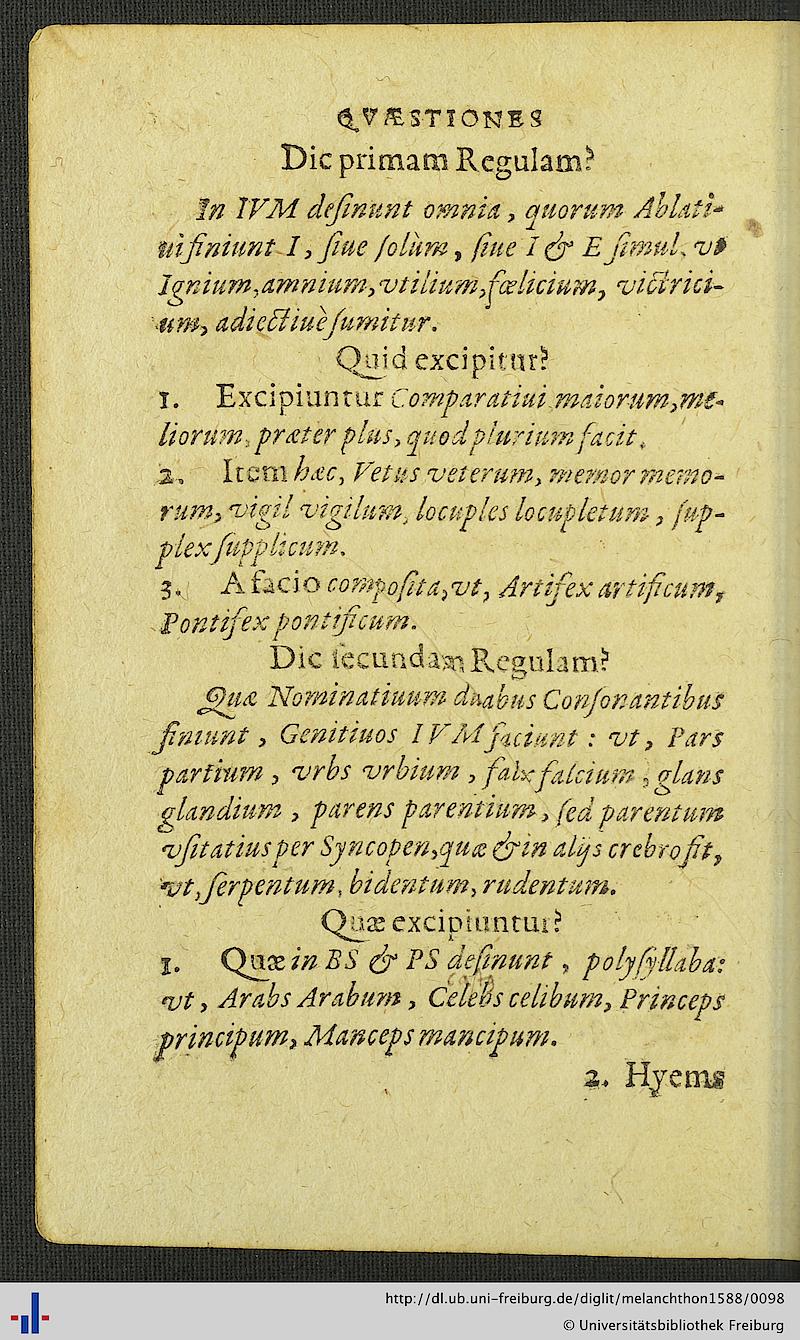 QVÆSTIONES
Dic primam Regulam?
In IVM desinunt omnia, quorum Ablati-
ui finiunt I, siue solùm, siue I & E simul, vt
Ignium, amnium, vtilium, fœlicium, victrici-
um, adiectiuè sumitur.
Quid excipitur?
1. Excipiuntur Comparatiui maiorum, me-
liorum, præter plus, quod plurium facit.
2. Item hæc, Vetus veterum, memor memo-
rum, vigil vigilum, locuples locupletum, sup-
plex supplicum.
3. A facio composita, vt, Artifex artificum,
Pontifex pontificum.
Dic secundam Regulam?
Quæ Nominatiuum duabus Consonantibus
finiunt, Genitiuos IVM faciunt: vt, Pars
partium, vrbs vrbium, falx falcium, glans
glandium, parens parentium, sed parentum
vsitatius per Syncopen, quæ & in alijs crebro fit,
vt, serpentum, bidentum, rudentum.
Quæ excipiuntur?
1. Quæ in BS & PS desinunt, polysyllaba:
vt, Arabs Arabum, Celebs celibum, Princeps
principum, Manceps mancipum.
2. Hyems
http://dl.ub.uni-freiburg.de/diglit/melanchthon1588/0098
© Universitätsbibliothek Freiburg